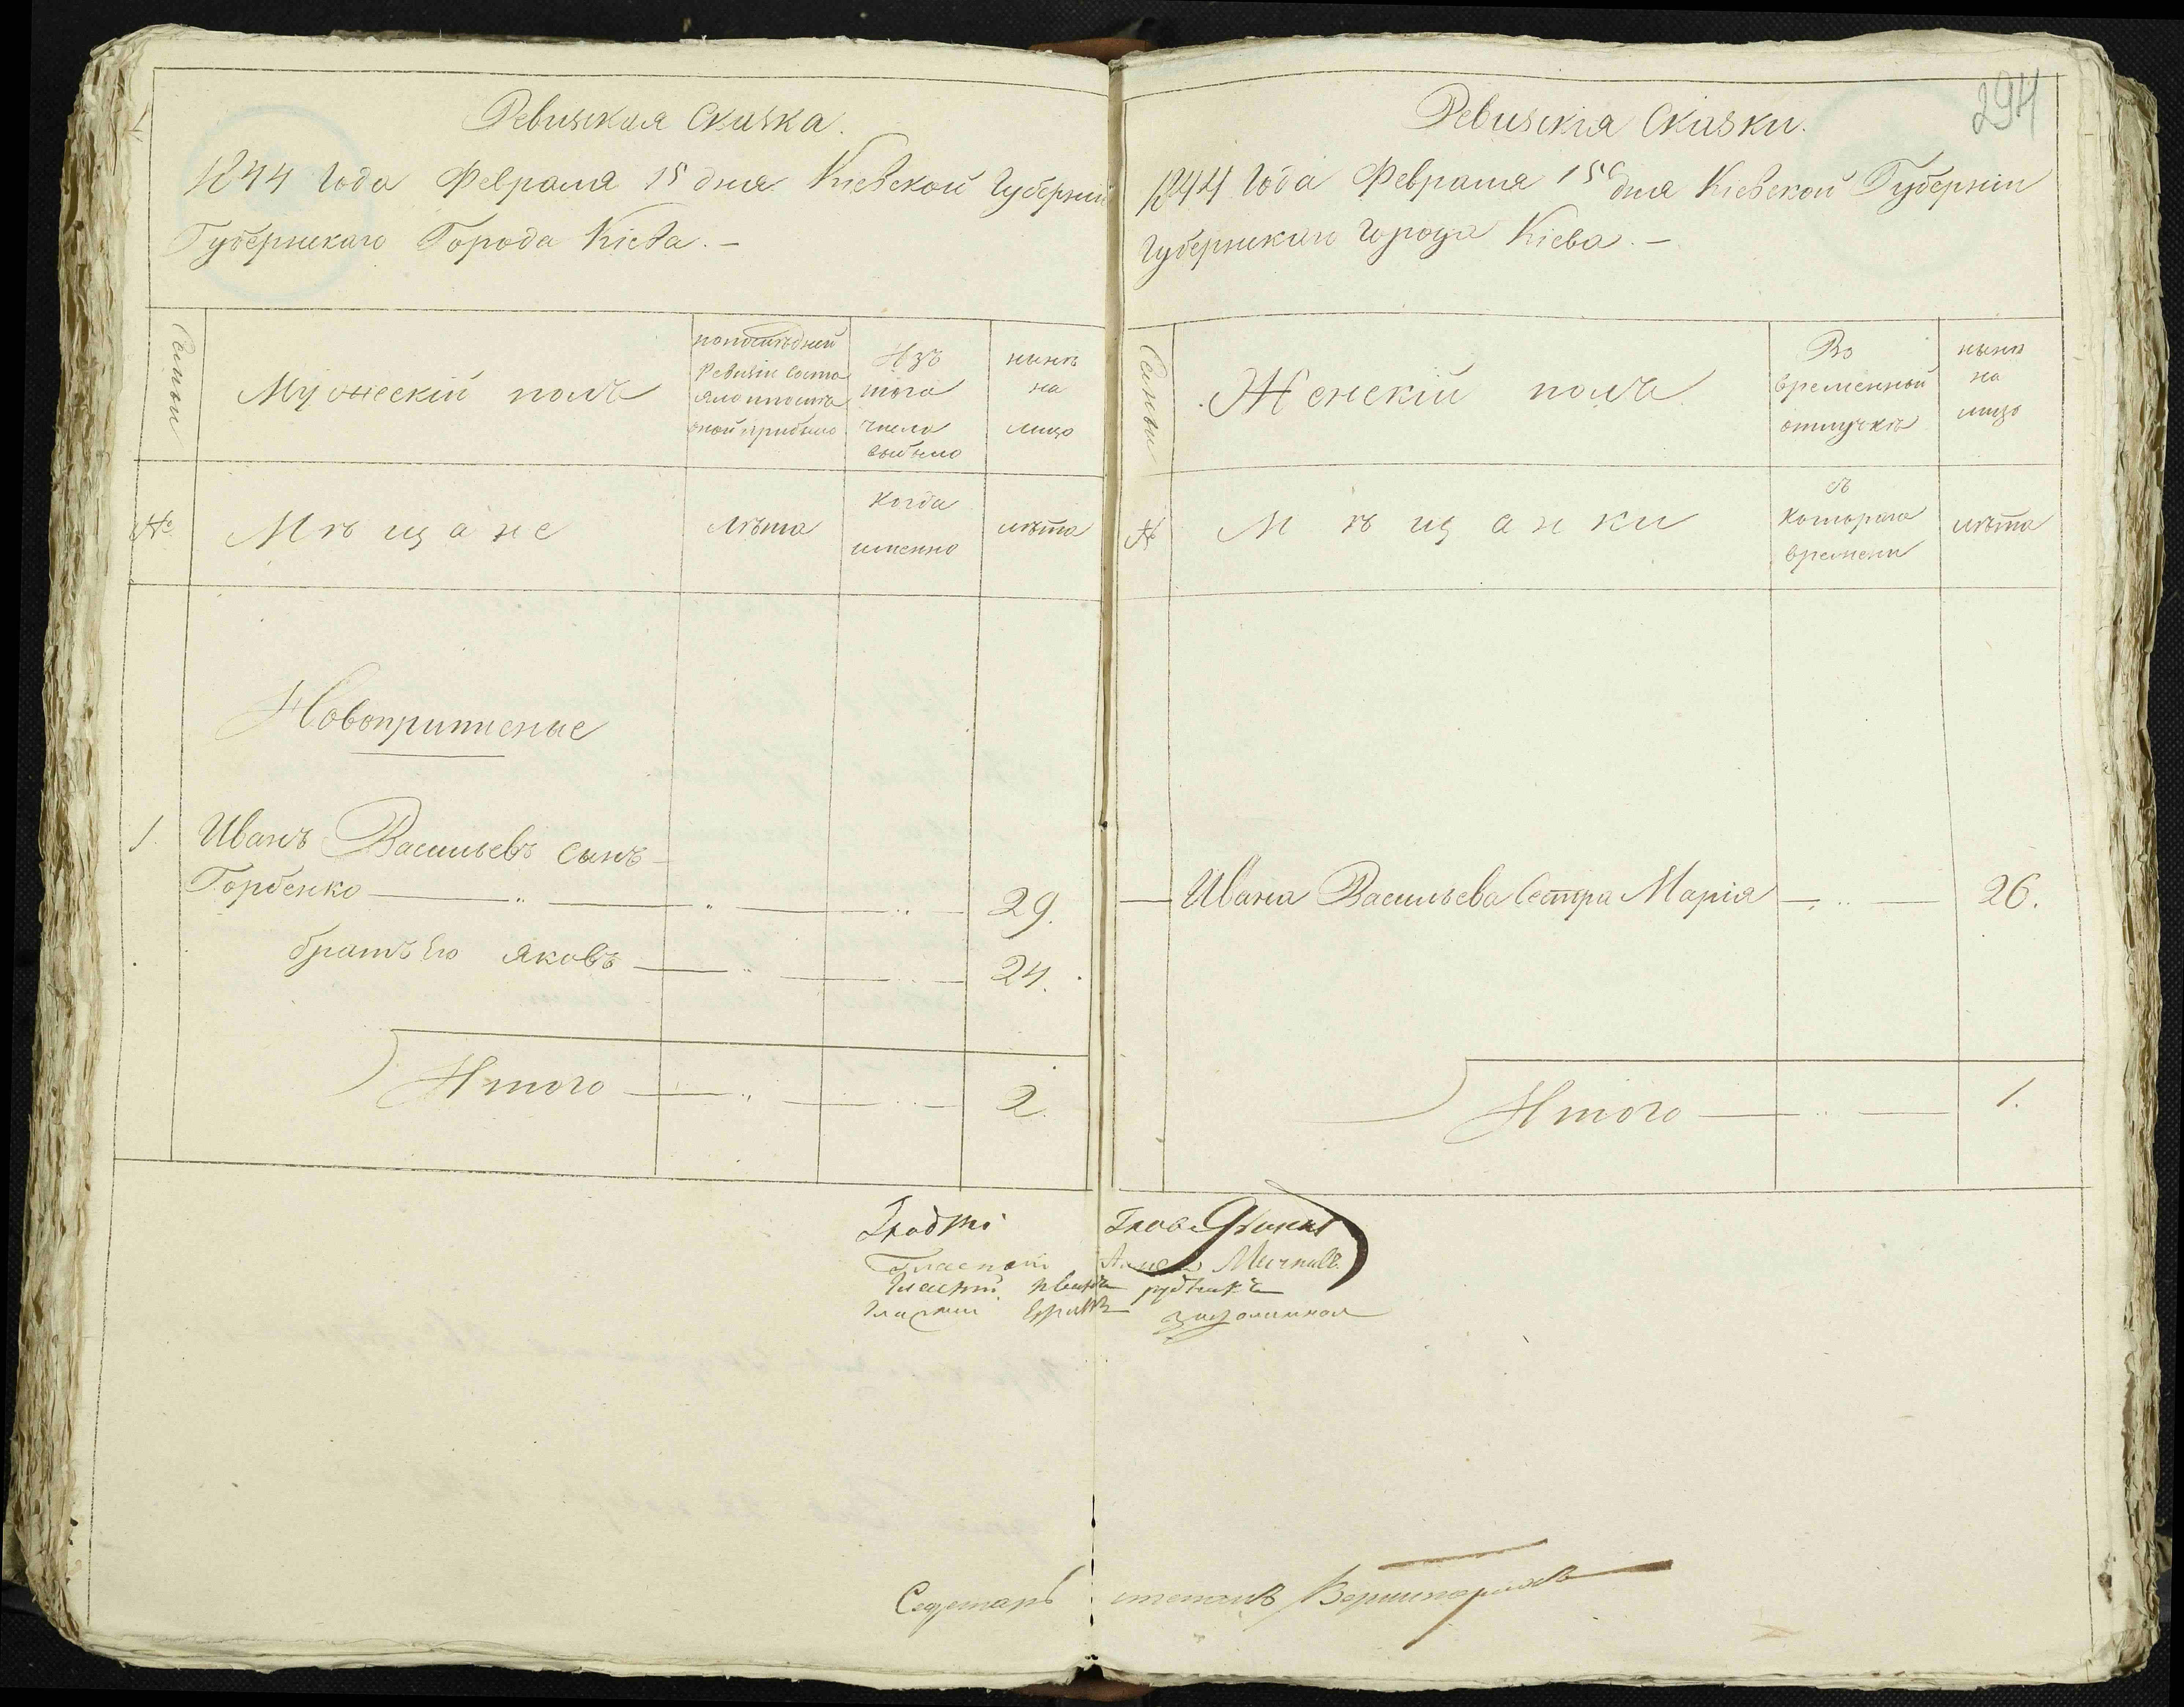 Ревизская Сказка.
1844 Года Февраля 15 дня Кіевской Губерніи
Губернскаго Города Кіева. –
Семьи
Мужескій полъ
по последней
Ревизіи состо
яло и после
оной прибыло
Изъ
того
числа
выбыло
ныне
на
лицо
№
Мѣщане
Лѣта
Когда
именно
лѣта
Новоприписные
1. Иванъ Васильевъ сынъ
Горбенко 29.
братъ Его Яковъ 24.
Итого 2.
294
Ревизскія Сказки.
1844 Года Февраля 15 дня Кіевской Губерніи
Губернскаго Города Кіева. –
Семьи
Женскій полъ
Во
временной
отлучкѣ
нынѣ
на
лицо
№
Мѣщанки
съ
котораго
времени
лѣта
Ивана Васильева Сестра Марія 26.
Итого 1.
Гласной
Гласный Иванъ
Гласный
Секретарь Степанъ